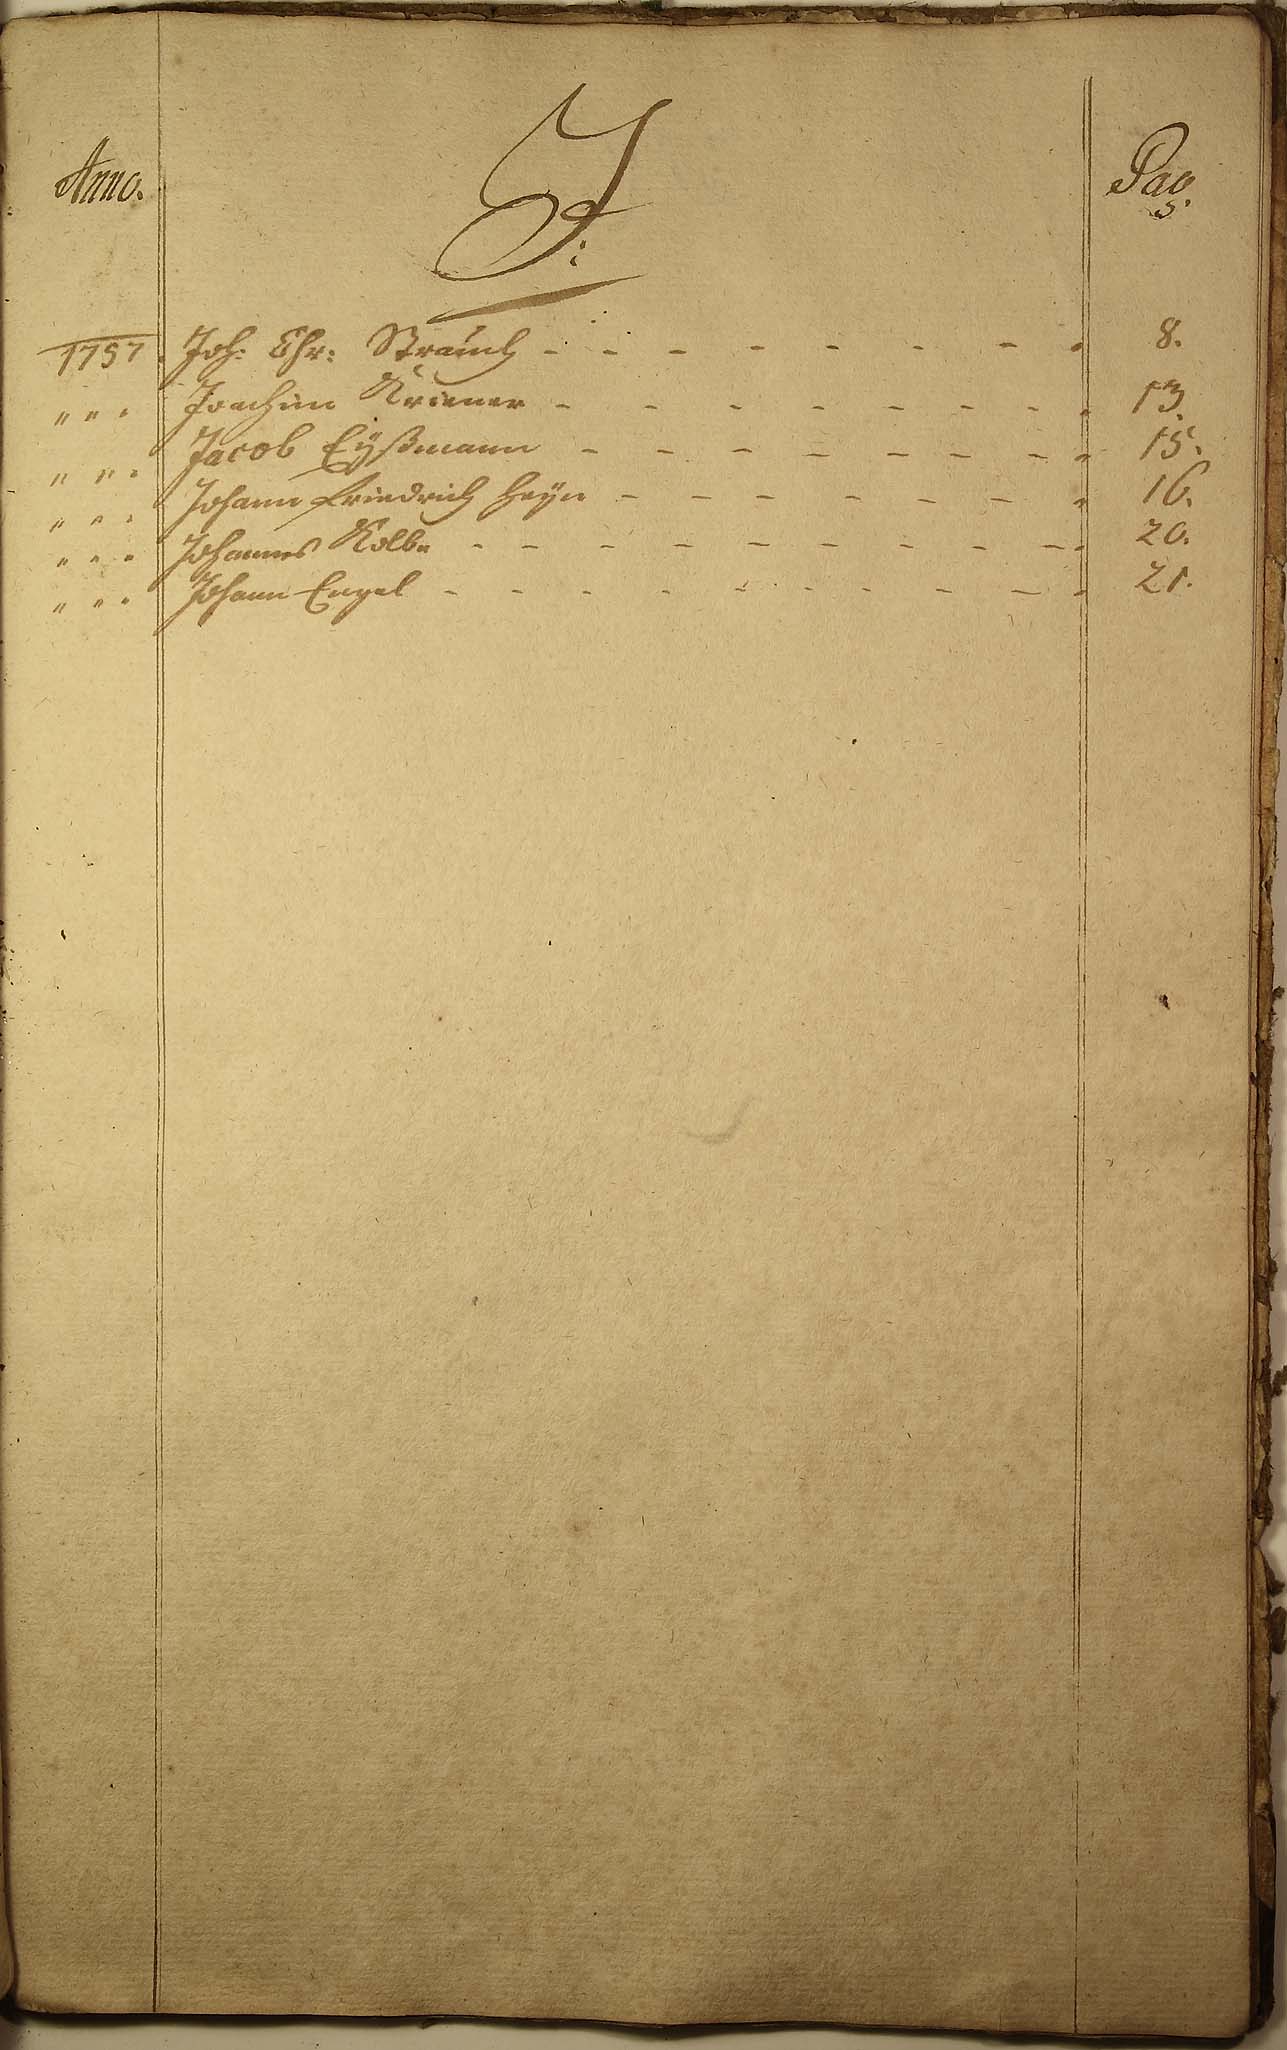 Anno. J: Pag.
1757. Joh: Chr: Strauch - - - - - - - - - 8.
" " " Joachim Kriener - - - - - - - - - 13.
" " " Jacob Eyßmann - - - - - - - - - 15.
" " " Johann Friedrich Heyn - - - - - - - - 16.
" " " Johannes Kolbe - - - - - - - - - - 20.
" " " Johann Engel - - - - - - - - - - 21.